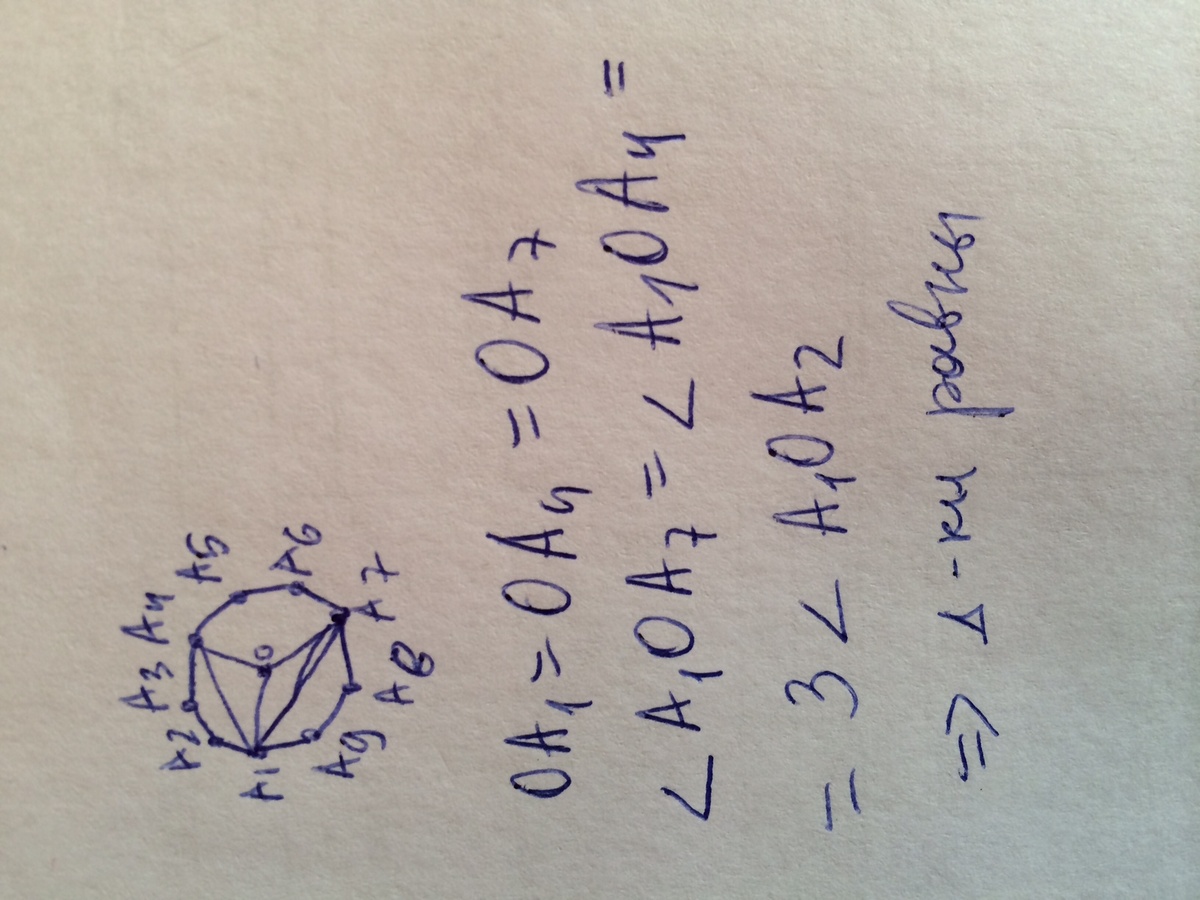 A5
A4
A6
A3
A2
O
A7
A1
A8
A9
OA1 = OA4 = OA7
∠A1OA7 = ∠A1OA4 =
= 3∠A1OA2
=> Δ-ки равны